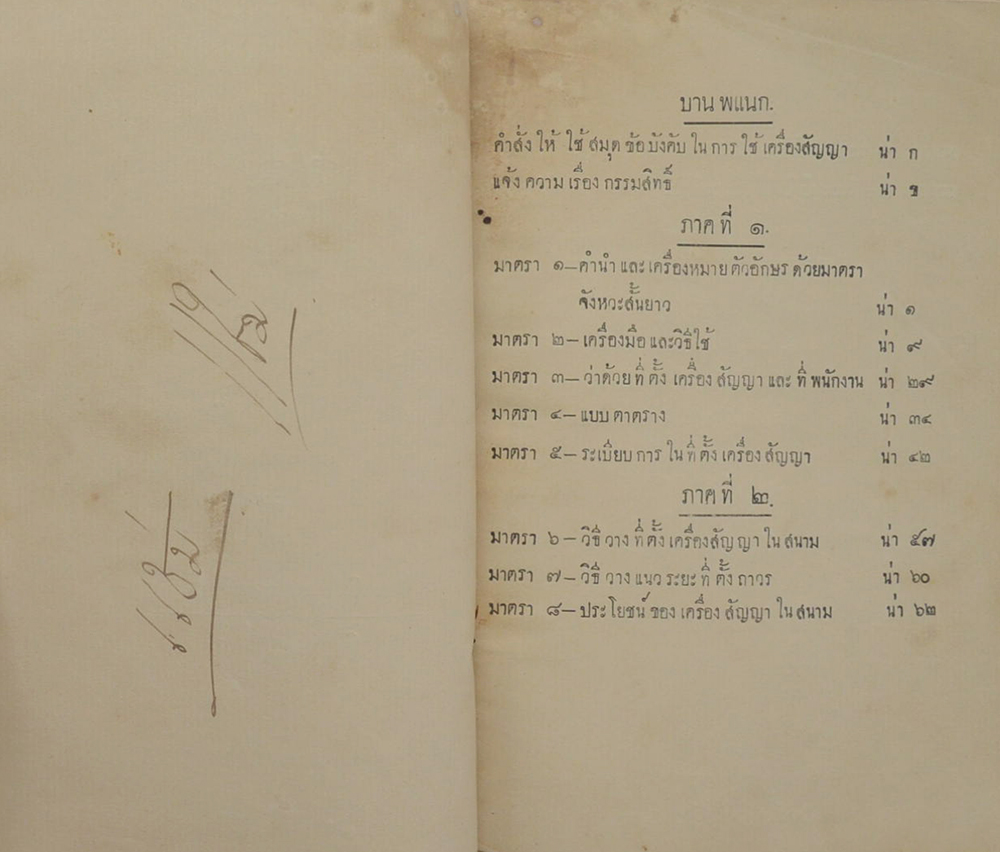 บานพแนก.
คำสั่งให้ใช้สมุดข้อบังคับในการใช้เครื่องสัญญา น่า ก
แจ้งความเรื่องกรรมสิทธิ์ น่า ข
ภาคที่ ๑.
มาตรา ๑—คำนำและเครื่องหมายตัวอักษรด้วยมาตรา
จังหวะสั้นยาว น่า ๑
มาตรา ๒—เครื่องมือและวิธีใช้ น่า ๙
มาตรา ๓—ว่าด้วยที่ตั้งเครื่องสัญญาและที่พนักงาน น่า ๒๙
มาตรา ๔—แบบตาตราง น่า ๓๔
มาตรา ๕—ระเบียบการในที่ตั้งเครื่องสัญญา น่า ๔๒
ภาคที่ ๒.
มาตรา ๖—วิธีวางที่ตั้งเครื่องสัญญาในสนาม น่า ๕๗
มาตรา ๗—วิธีวางแนวระยะที่ตั้งถาวร น่า ๖๐
มาตรา ๘—ประโยชน์ของเครื่องสัญญาในสนาม น่า ๖๒